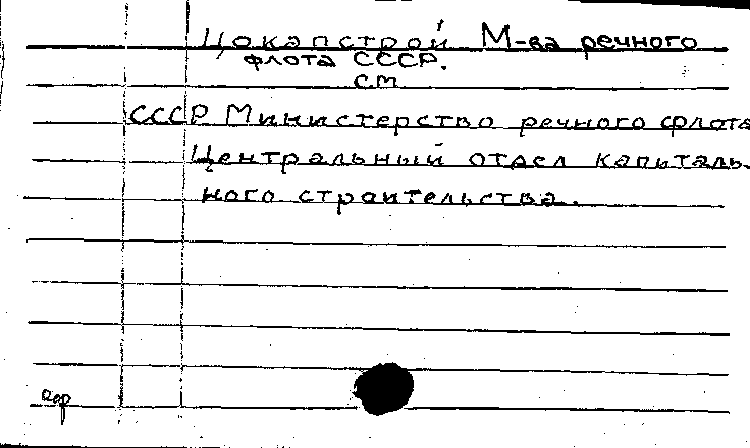 Цокапстрой М-ва речного
флота СССР.
см
СССР Министерство речного флота
Центральный отдел капиталь-
ного строительства.